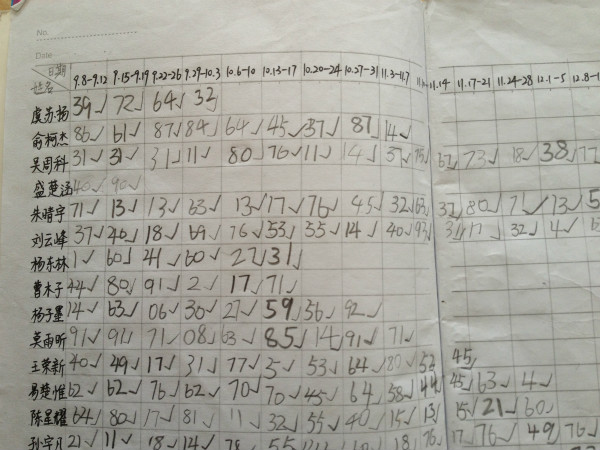 No.
Date
日期 9.8-9.12 9.15-9.19 9.22-26 9.29-10.3 10.6-10 10.13-17 10.20-24 10.27-31 11.3-11.7 11.14 11.17-21 11.24-28 12.1-5
姓名
虞苏杨 39✓ 72✓ 64✓ 33
俞柯杰 86✓ 61✓ 87✓ 84✓ 64✓ 45✓ 37✓ 87✓ 14✓
吴周科 31✓ 31✓ 31✓ 11✓ 80✓ 76✓ 11✓ 14✓ 37✓ 73✓ 18✓ 38✓ 77
盛楚涵 40✓ 90✓
朱晴宇 71✓ 13✓ 13✓ 63✓ 13✓ 17✓ 76✓ 45✓ 32✓ 63✓ 37✓ 80✓ 71✓ 13✓
刘云峰 37✓ 40✓ 18✓ 69✓ 76✓ 53✓ 55✓ 14✓ 40✓ 93✓ 17✓ 32✓ 4✓
杨东林 1✓ 60✓ 41✓ 60✓ 27✓ 31✓
曹木子 44✓ 80✓ 91✓ 2✓ 17✓ 71✓
杨子墨 14✓ 63✓ 06✓ 36✓ 27✓ 59✓ 56✓ 92✓
莫雨昕 91✓ 91✓ 71✓ 08✓ 63✓ 85✓ 14✓ 91✓ 71✓
王荣新 40✓ 49✓ 17✓ 31✓ 77✓ 5✓ 53✓ 64✓ 80✓ 52✓ 45✓
易楚惟 62✓ 62✓ 76✓ 62✓ 70✓ 70✓ 45✓ 64✓ 58✓ 44✓ 45✓ 63✓ 4✓
陈星耀 64✓ 80✓ 17✓ 81✓ 11✓ 32✓ 55✓ 40✓ 15✓ 13✓ 15✓ 21✓ 60✓
孙宇凡 21✓ 11✓ 18✓ 14✓ 55✓ 18✓ 76✓ 17✓ 76✓ 49✓ 76✓